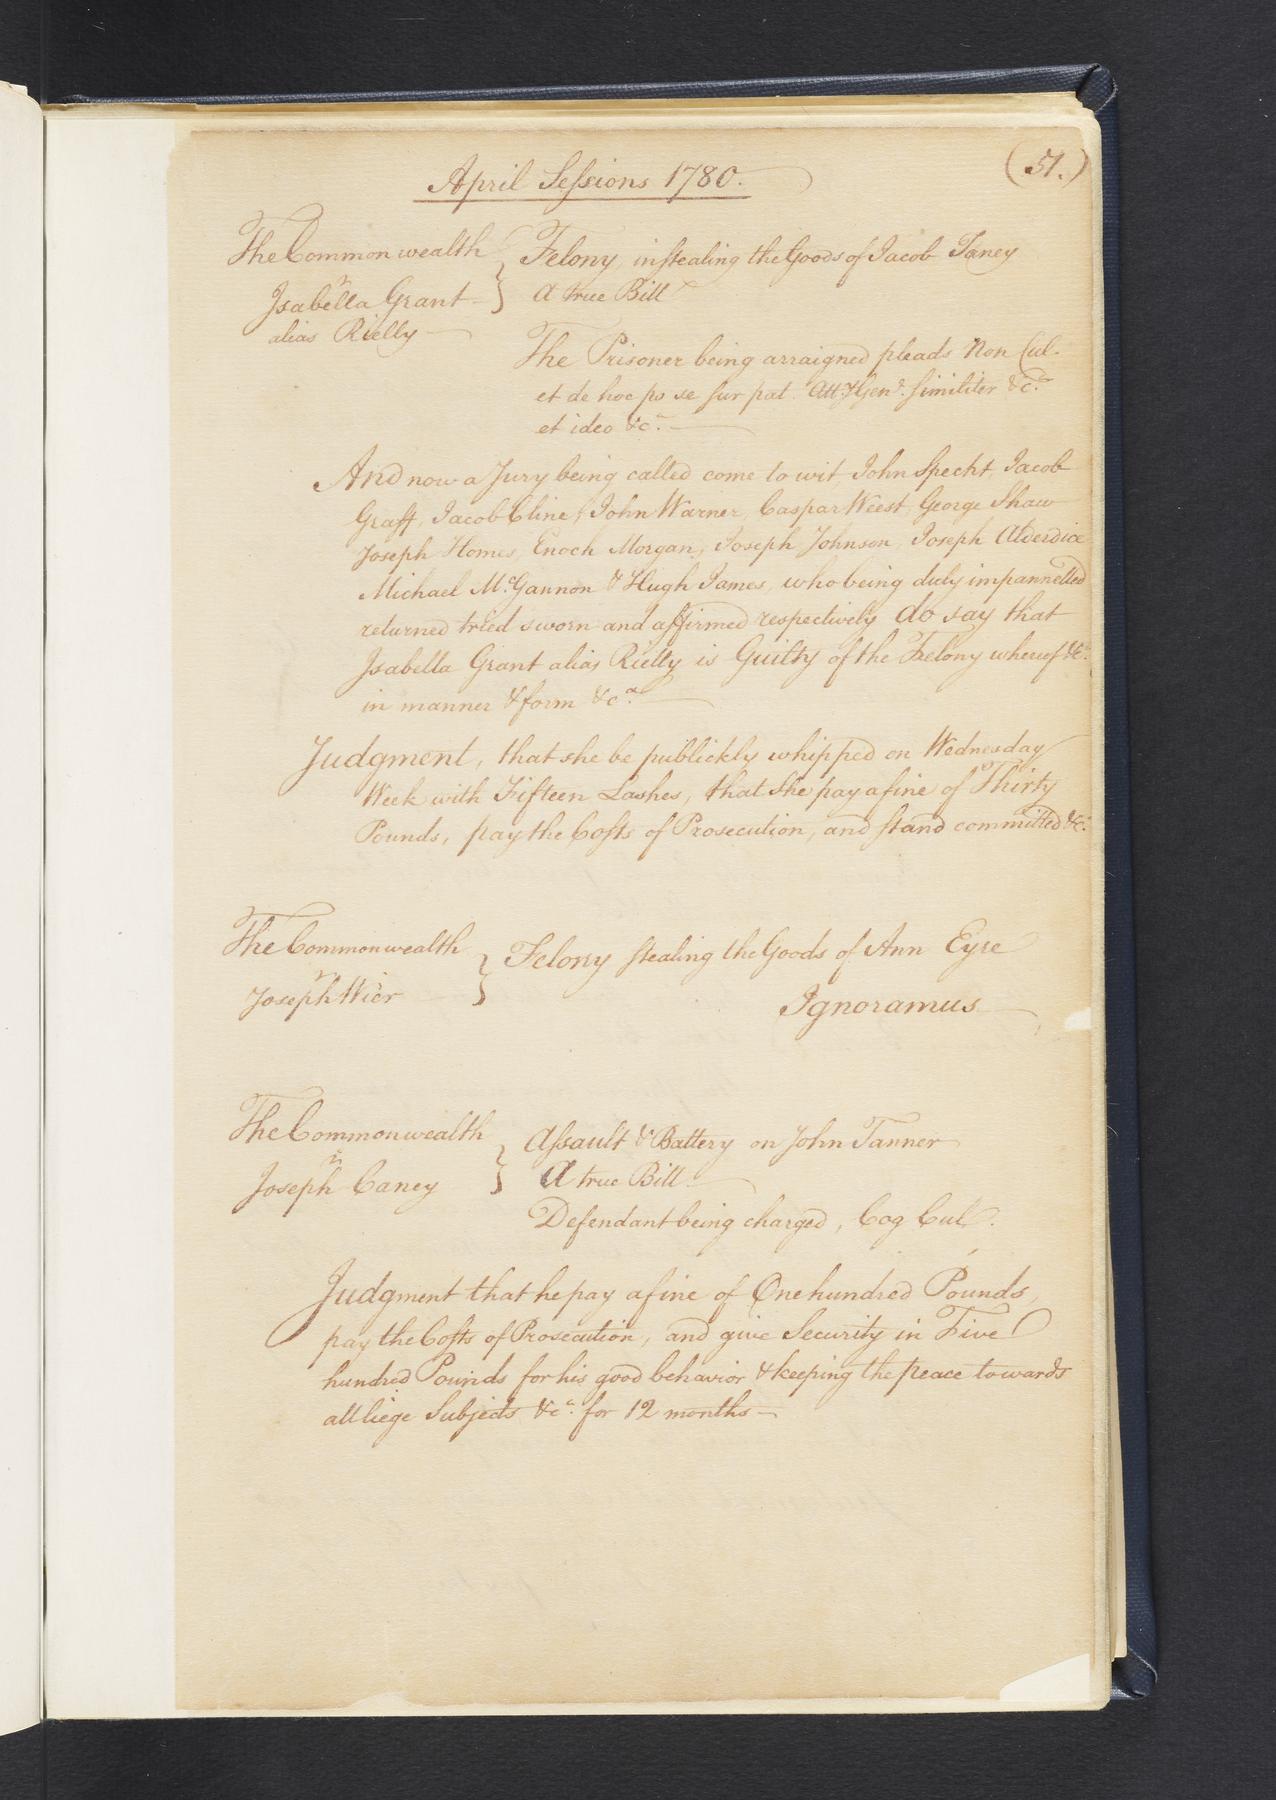 (51.)
April Sessions 1780.
The Commonwealth
v
Isabella Grant
alias Rielly
Felony, in stealing the Goods of Jacob Taney
A true Bill
The Prisoner being arraigned pleads Non Cul.
et de hoc po se sur pat. Atty Genl. similiter &ca.
et ideo &ca.
And now a Jury being called come to wit, John Specht, Jacob
Graff, Jacob Cline, John Warner, Caspar Weest, George Shaw
Joseph Homes, Enoch Morgan, Joseph Johnson, Joseph Alderdice
Michael McGannon & Hugh James, who being duly impannelled
returned tried sworn and affirmed respectively do say that
Isabella Grant alias Rielly is Guilty of the Felony whereof &ca.
in manner & form &ca.
Judgment, that she be publickly whipped on Wednesday
Week with Fifteen Lashes, that She pay a fine of Thirty
Pounds, pay the Costs of Prosecution, and stand committed &ca.
The Commonwealth
v
Joseph Wier
Felony stealing the Goods of Ann Eyre
Ignoramus
The Commonwealth
v
Joseph Caney
Assault & Battery on John Tanner
A true Bill
Defendant being charged, Cog Cul.
Judgment that he pay a fine of One hundred Pounds,
pay the Costs of Prosecution, and give Security in Five
hundred Pounds for his good behavior & keeping the peace towards
all liege Subjects &ca. for 12 months